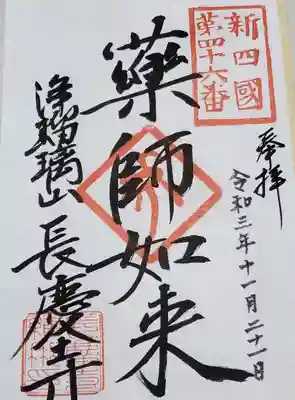 新四國
第四十六番
奉拝
令和三年十一月二十一日
藥師如来
浄瑠璃山長慶寺